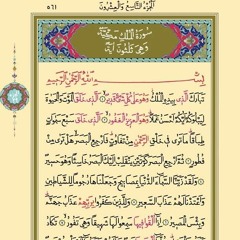 الجزء التاسع والعشرون
٥٦١
سورة الملك مكية
وهي ثلثون آية
بسم الله الرحمن الرحيم
تبارك الذي بيده الملك وهو على كل شيء قدير الذي خلق الموت والحيوة
ليبلوكم أيكم أحسن عملا وهو العزيز الغفور الذي خلق سبع سموات
طباقا ما ترى في خلق الرحمن من تفاوت فارجع البصر هل ترى من
فطور ثم ارجع البصر كرتين ينقلب إليك البصر خاسئا وهو حسير
ولقد زينا السماء الدنيا بمصابيح وجعلناها رجوما للشياطين
وأعتدنا لهم عذاب السعير وللذين كفروا بربهم عذاب جهنم
وبئس المصير إذا ألقوا فيها سمعوا لها شهيقا وهي تفور